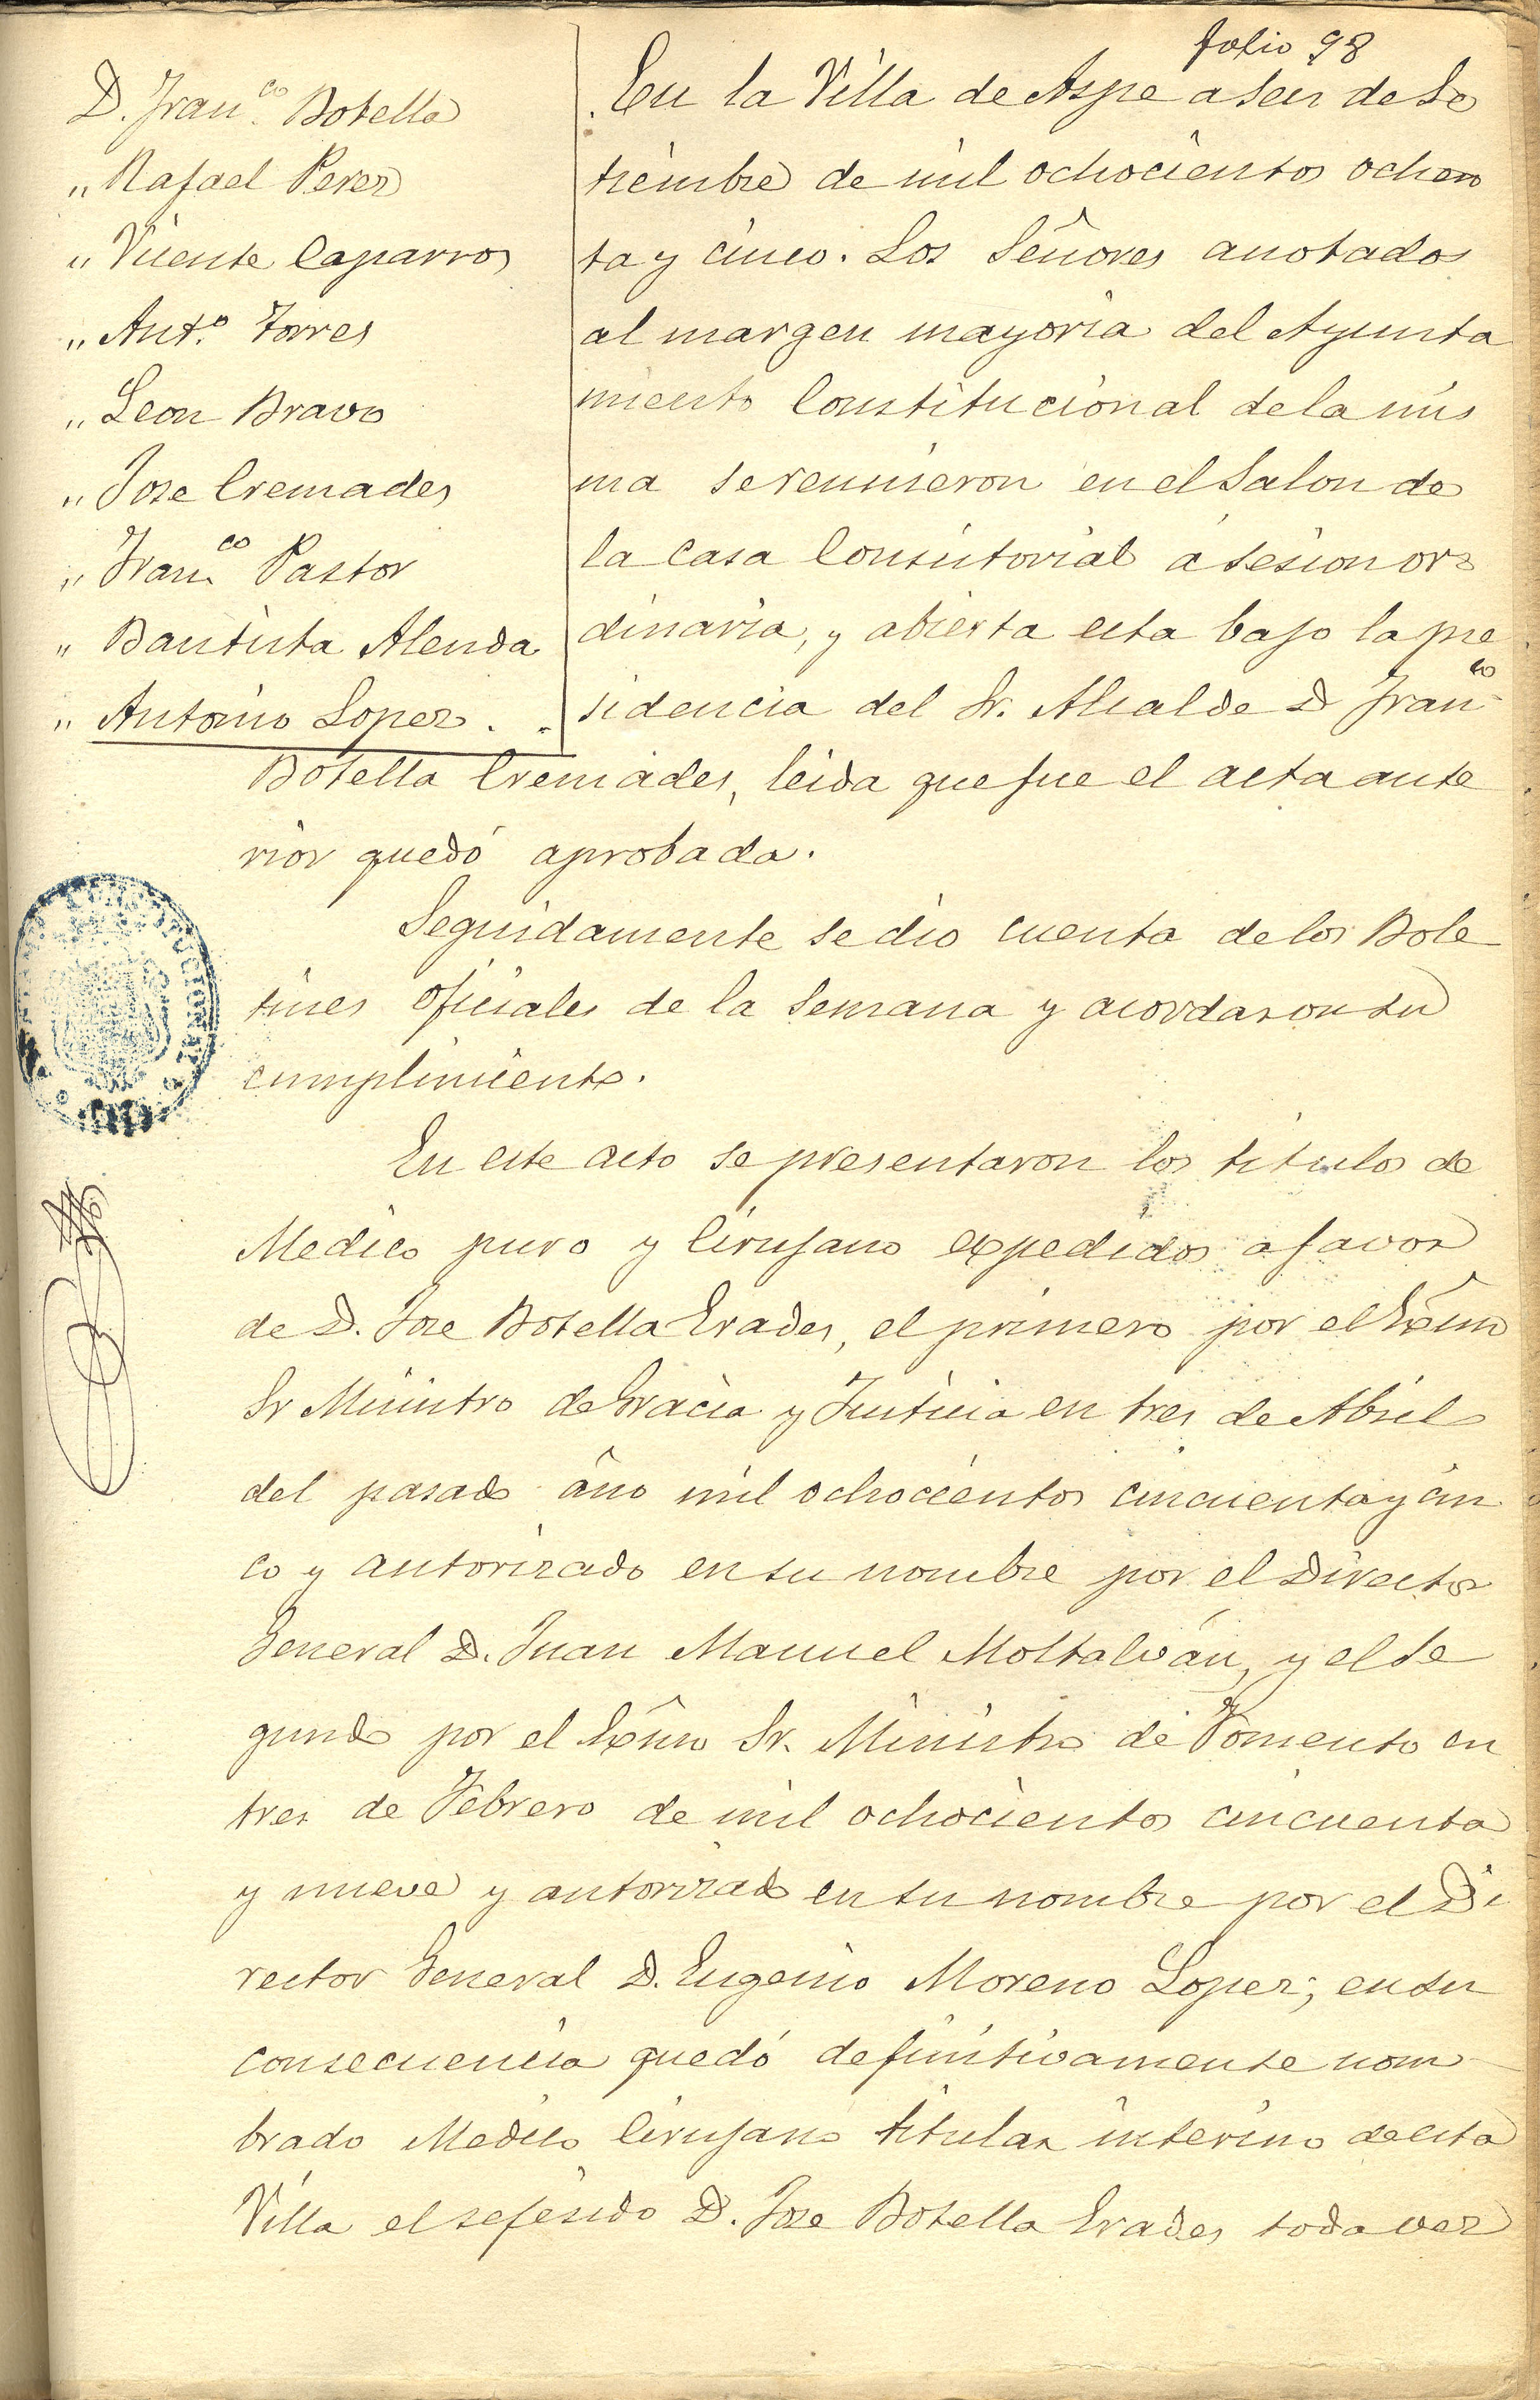 folio 98
D. Fran.co Botella
" Rafael Perez
" Vicente Caparros
" Ant.o Torres
" Leon Bravo
" Jose Cremades
" Fran.co Pastor
" Bautista Alenda
" Antonio Lopez
En la Villa de Aspe a seis de Se
tiembre de mil ochocientos ochen
ta y cinco. Los Señores anotados
al margen mayoria del Ayunta
miento Constitucional de la mis
ma se reunieron en el Salon de
la Casa Consistorial á sesion or
dinaria, y abierta esta bajo la pre
sidencia del Sr. Alcalde D Fran.co
Botella Cremades, leida que fue el acta ante
rior quedó aprobada.
Seguidamente se dio cuenta de los Bole
tines oficiales de la semana y acordaron su
cumplimiento.
En este acto se presentaron los titulos de
Medico puro y Cirujano expedidos a favor
de D. Jose Botella Erades, el primero por el Exmo
Sr Ministro de Gracia y Justicia en tres de Abril
del pasado año mil ochocientos cincuenta y cin
co y autorizado en su nombre por el Director
General D. Juan Manuel Moltalván, y el se
gundo por el Exmo Sr. Ministro de Fomento en
tres de Febrero de mil ochocientos cincuenta
y nueve y autorizado en su nombre por el Di
rector General D. Eugenio Moreno Lopez; en su
consecuencia quedó definitivamente nom
brado Medico Cirujano titular interino de esta
Villa el referido D. Jose Botella Erades toda vez